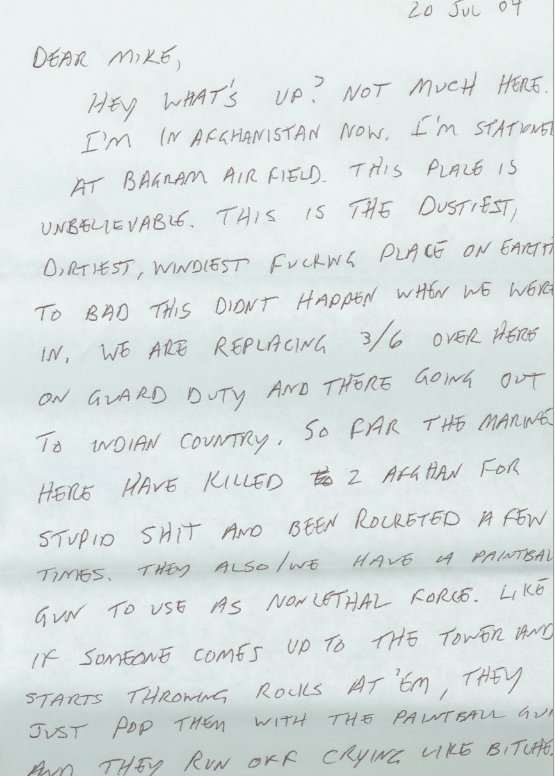 20 JUL 04
DEAR MIKE,
HEY WHAT'S UP? NOT MUCH HERE.
I'M IN AFGHANISTAN NOW. I'M STATIONE
AT BAGRAM AIR FIELD. THIS PLACE IS
UNBELIEVABLE. THIS IS THE DUSTIEST,
DIRTIEST, WINDIEST FUCKING PLACE ON EARTH
TO BAD THIS DIDNT HAPPEN WHEN WE WERE
IN. WE ARE REPLACING 3/6 OVER HERE
ON GUARD DUTY AND THERE GOING OUT
TO INDIAN COUNTRY. SO FAR THE MARINE
HERE HAVE KILLED 2 AFGHAN FOR
STUPID SHIT AND BEEN ROCKETED A FEW
TIMES. THEY ALSO/WE HAVE A PAINTBAL
GUN TO USE AS NONLETHAL FORCE. LIKE
IF SOMEONE COMES UP TO THE TOWER AND
STARTS THROWING ROCKS AT 'EM, THEY
JUST POP THEM WITH THE PAINTBALL GUN
AND THEY RUN OFF CRYING LIKE BITCHE